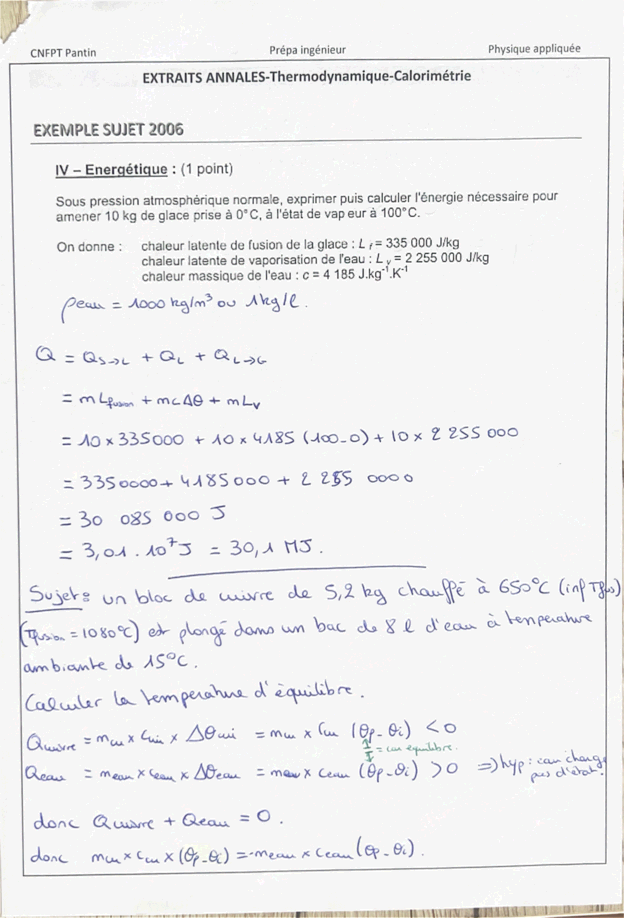 CNFPT Pantin Prépa ingénieur Physique appliquée
EXTRAITS ANNALES-Thermodynamique-Calorimétrie
EXEMPLE SUJET 2006
IV – Energétique : (1 point)
Sous pression atmosphérique normale, exprimer puis calculer l'énergie nécessaire pour
amener 10 kg de glace prise à 0°C, à l'état de vap eur à 100°C.
On donne : chaleur latente de fusion de la glace : L f = 335 000 J/kg
chaleur latente de vaporisation de l'eau : L v = 2 255 000 J/kg
chaleur massique de l'eau : c = 4 185 J.kg⁻¹.K⁻¹
ρeau = 1000 kg/m³ ou 1 kg/l.
Q = QS→L + QL + QL→G
= mLfusion + mcΔθ + mLv
= 10 x 335000 + 10 x 4185 (100-0) + 10 x 2 255 000
= 3350000 + 4185000 + 2 255 0000
= 30 085 000 J
= 3,01 . 10⁷J = 30,1 MJ.
Sujet : un bloc de cuivre de 5,2 kg chauffé à 650°C (inf Tfus)
(Tfusion = 1080°C) est plongé dans un bac de 8 l d'eau à température
ambiante de 15°C.
Calculer la temperature d'équilibre.
Qcuivre = mcu x Ccui x Δθcui = mcu x Ccu (θf - θi) < 0
= eau equilibre.
Qeau = meau x Ceau x Δθeau = meau x ceau (θf - θi) > 0 ⇒ hyp : eau change
pas d'état.
donc Qcuivre + Qeau = 0.
donc mcu x Ccu x (θf - θi) = -meau x Ceau (θf - θi).